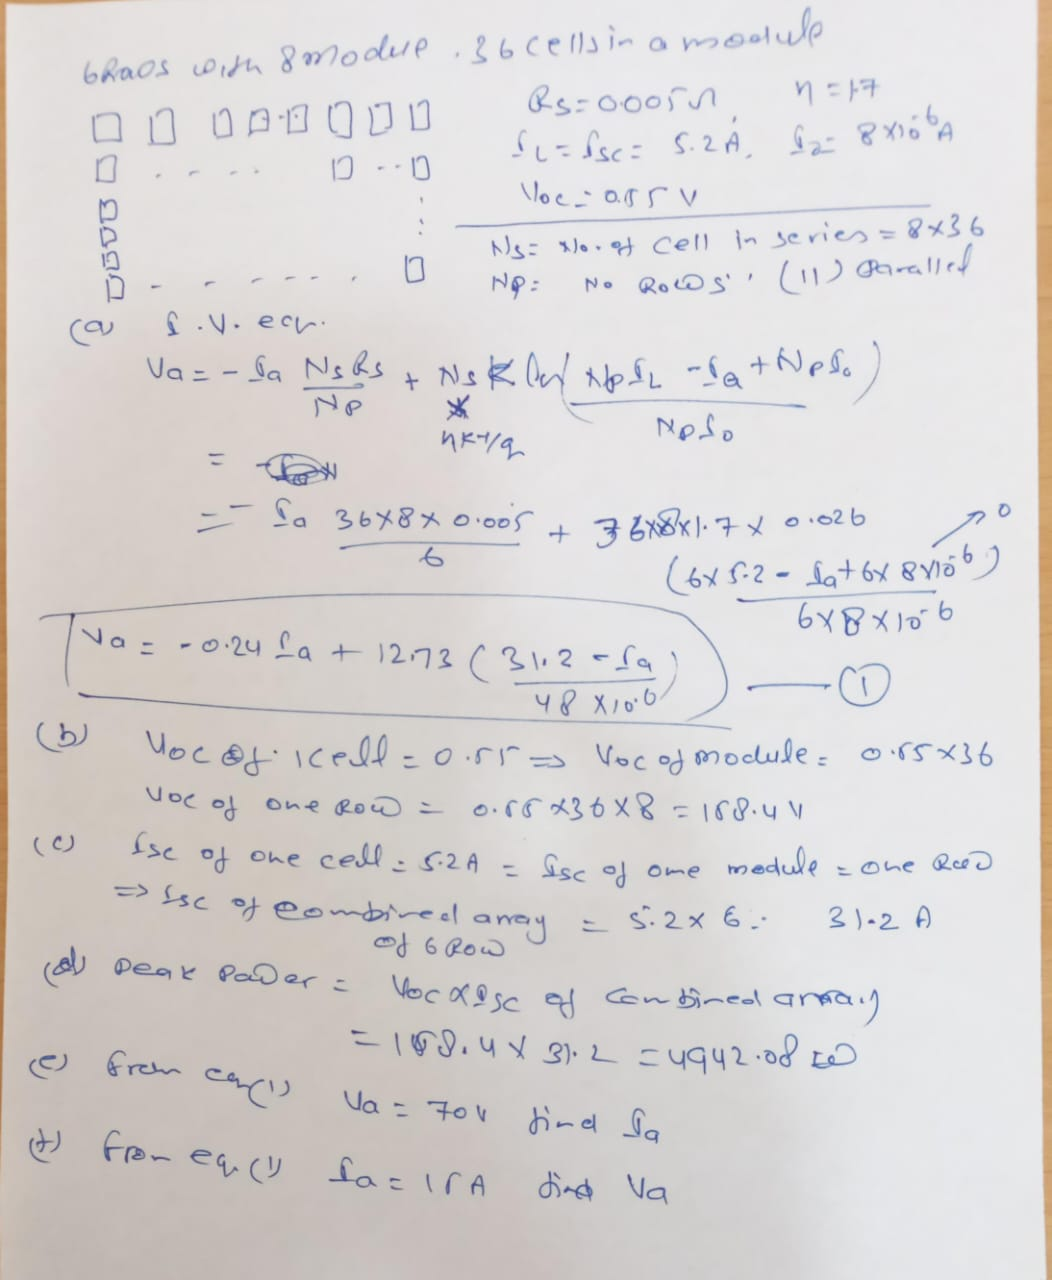 6 Rows with 8 module . 36 cells in a module
Rs = 0.005 Ω, η = 1.7
IL = Isc = 5.2 A, I2 = 8 X 10^-6 A
Voc = 0.55 V
Ns = No. of cell in series = 8 X 36
Np = No Rows (11) Parallel
(a) I.V. eqn.
Va = - Ia Ns Rs / Np + Ns K ln( Np IL - Ia + Np Io / Np Io )
nKT/q
=
= - Ia 36 X 8 X 0.005 / 6 + 36 X 8 X 1.7 X 0.026
(6 X 5.2 - Ia + 6 X 8 X 10^-6) / 6 X 8 X 10^-6 → 0
Va = - 0.24 Ia + 12.73 ( 31.2 - Ia / 48 X 10^-6 ) — (1)
(b) Voc of 1 cell = 0.55 => Voc of module = 0.55 X 36
Voc of one Row = 0.55 X 36 X 8 = 158.4 V
(c) Isc of one cell = 5.2 A = Isc of one module = one Row
=> Isc of combined array = 5.2 X 6 = 31.2 A
of 6 Row
(d) Peak Power = Voc X Isc of combined array
= 158.4 X 31.2 = 4942.08 W
(e) From eq (1) Va = 70 V find Ia
(f) From eq. (1) Ia = 15 A find Va